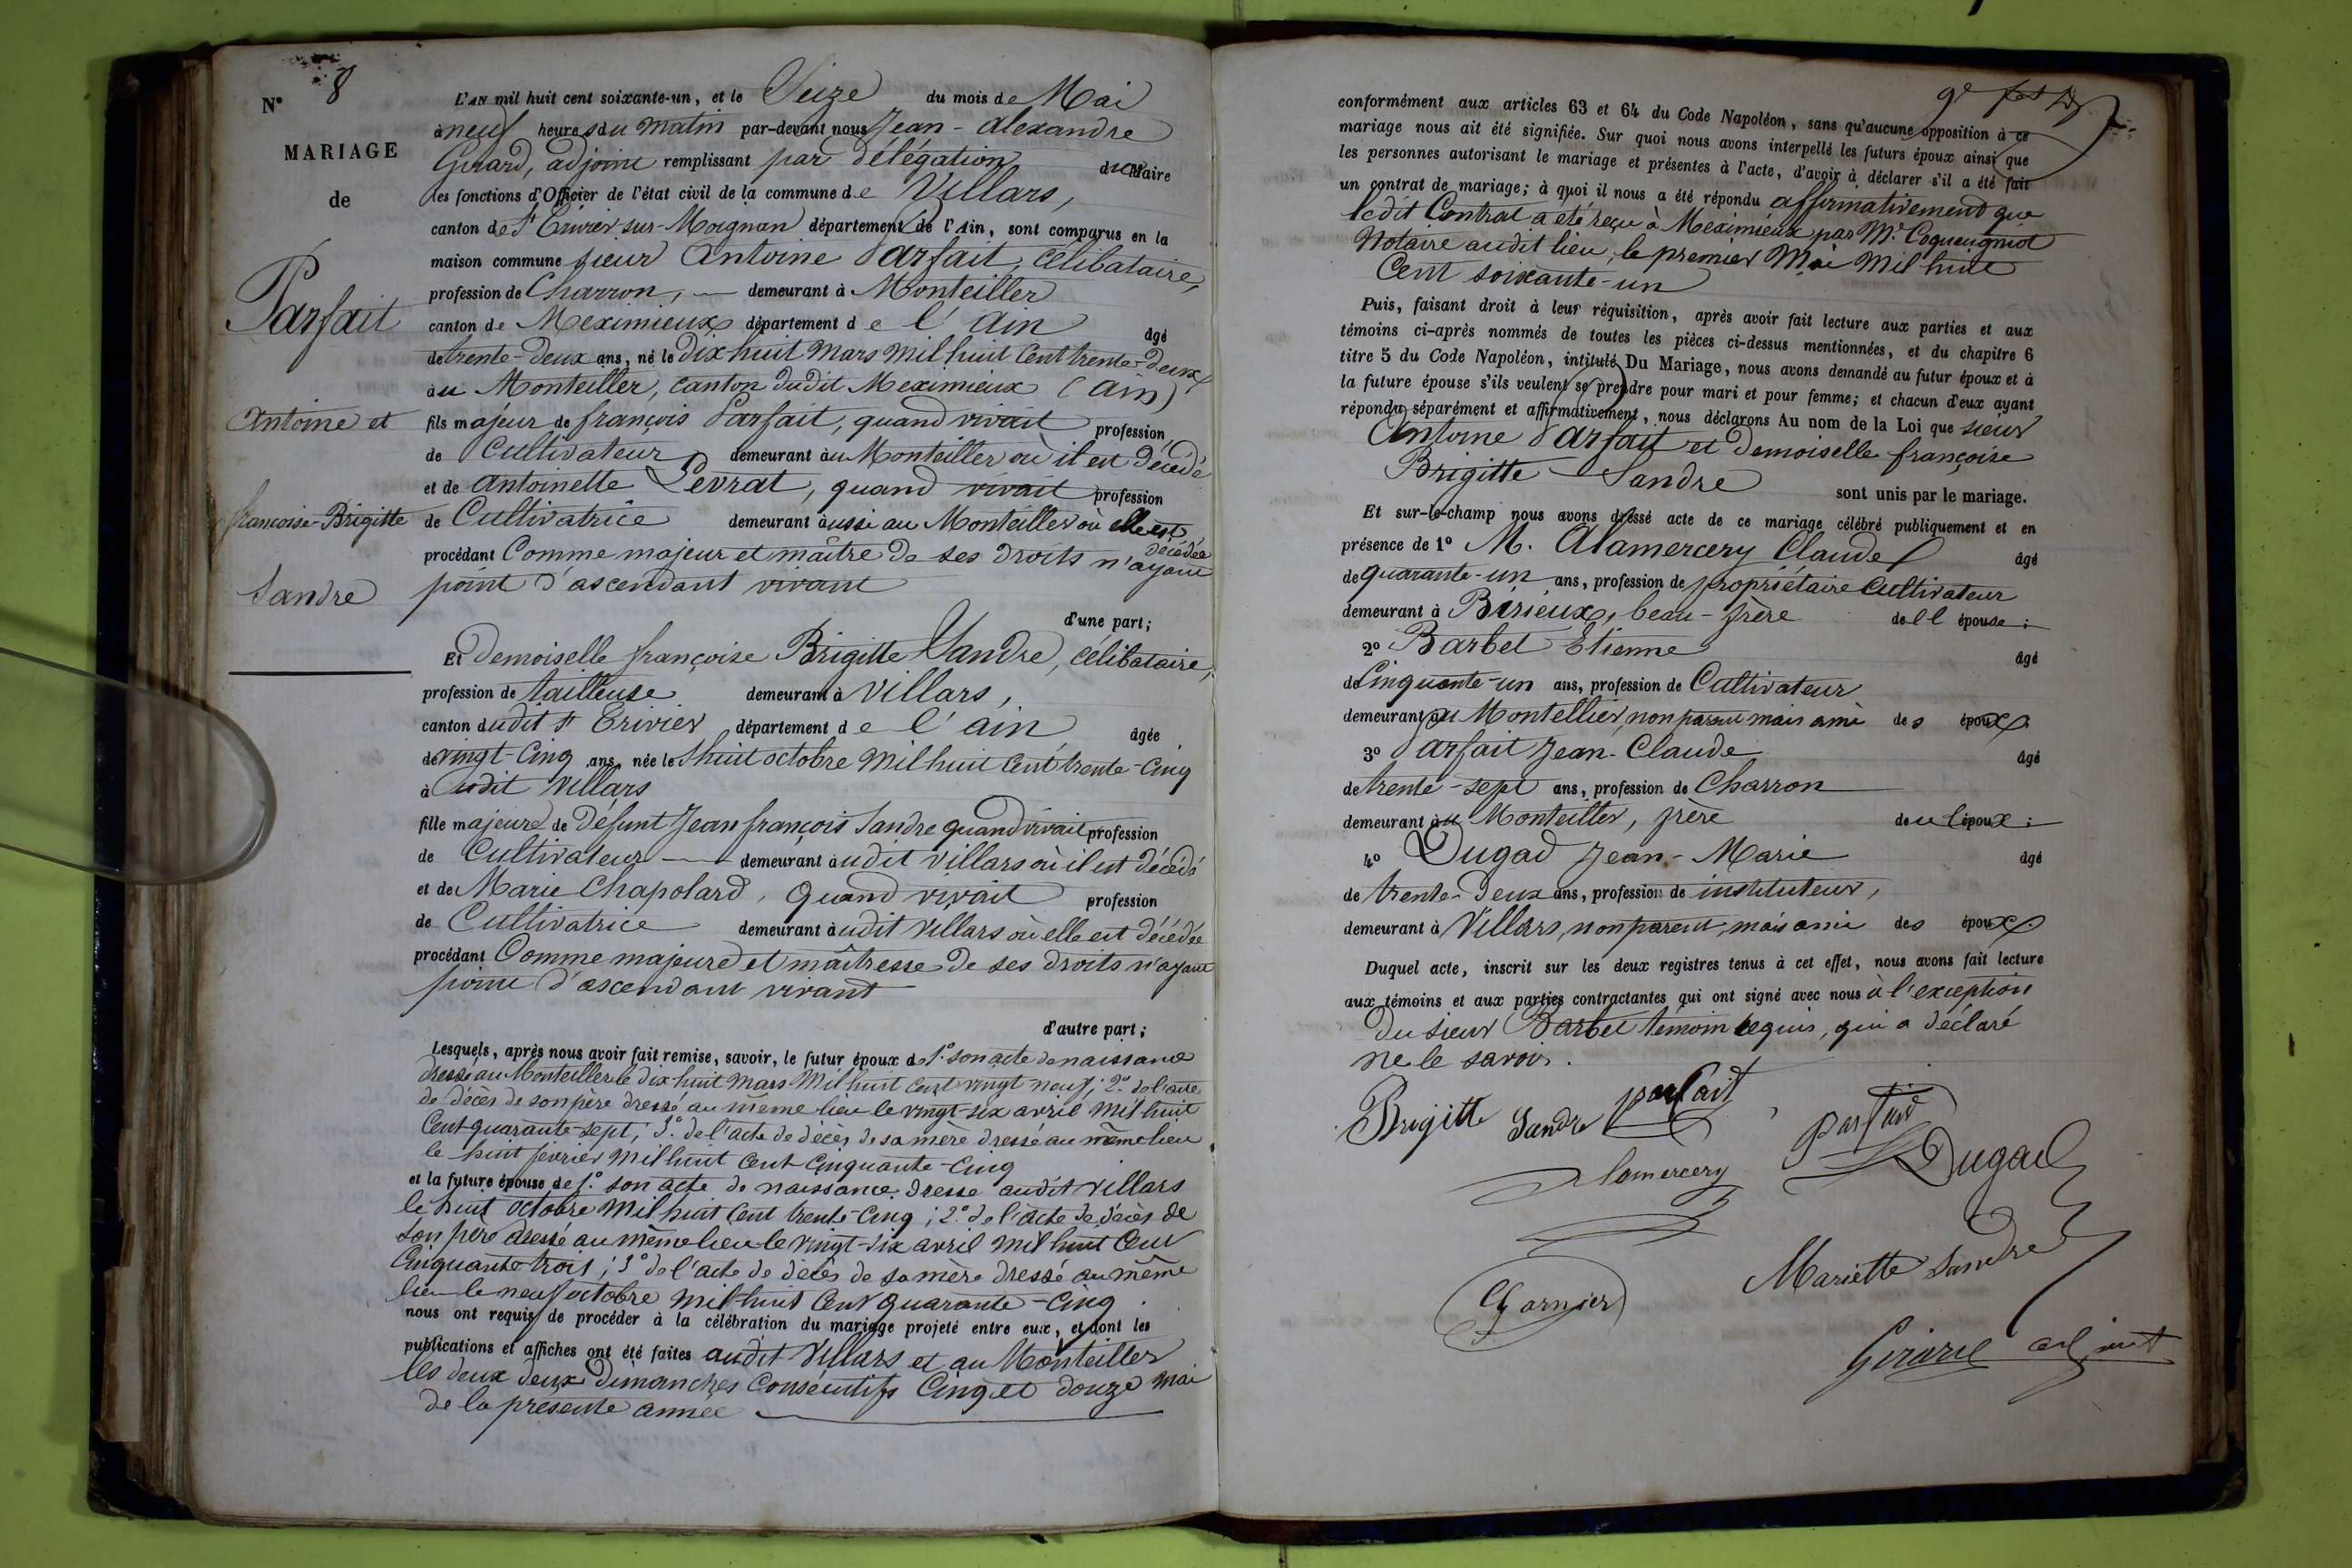 N° 8
MARIAGE
de
Parfait
Antoine et
françoise-Brigitte
Sandre
L'AN mil huit cent soixante-un, et le Seize du mois de Mai
à neuf heures du matin par-devant nous Jean-Alexandre
Girard, adjoint remplissant par délégation du Maire
les fonctions d'Officier de l'état civil de la commune de Villars,
canton de St Trivier-sur-Moignan département de l'Ain, sont comparus en la
maison commune sieur Antoine Parfait, célibataire,
profession de Charron, demeurant à Monteiller
canton de Meximieux département de l'Ain âgé
de trente-deux ans, né le dix huit Mars mil huit cent trente-deux
au Monteiller, canton dudit Meximieux (Ain)
fils majeur de françois Parfait, quand vivait profession
de Cultivateur demeurant au Monteiller où il est décédé
et de Antoinette Levrat, quand vivait profession
de Cultivatrice demeurant aussi au Monteiller où elle est décédée
procédant Comme majeur et maître de ses droits n'ayant
point d'ascendant vivant
d'une part;
Et demoiselle françoise Brigitte Sandre, célibataire,
profession de tailleuse demeurant à Villars,
canton dudit St Trivier département de l'ain âgée
de vingt-cinq ans, née le huit octobre mil huit cent trente-cinq
à udit Villars
fille majeure de défunt Jean françois Sandre quand vivait profession
de Cultivateur demeurant audit Villars où il est décédé
et de Marie Chapolard, quand vivait profession
de Cultivatrice demeurant audit Villars où elle est décédée
procédant Comme majeure et maîtresse de ses droits n'ayant
point d'ascendant vivant
d'autre part;
Lesquels, après nous avoir fait remise, savoir, le futur époux de 1° son acte de naissance
dressé au Monteiller le dix huit Mars mil huit cent vingt neuf; 2° de l'acte
de décès de son père dressé au même lieu le vingt-six avril mil huit
Cent quarante-sept; 3° de l'acte de décès de sa mère dressé au même lieu
le huit février mil huit cent cinquante-cinq
et la future épouse de 1° son acte de naissance dressé audit Villars
le huit octobre mil huit cent trente-cinq; 2° de l'acte de décès de
son père dressé au même lieu le vingt-six avril mil huit cent
Cinquante trois; 3° de l'acte de décès de sa mère dressé au même
lieu le neuf octobre mil huit cent quarante-cinq
nous ont requis de procéder à la célébration du mariage projeté entre eux, et dont les
publications et affiches ont été faites audit Villars et au Monteiller
les deux deux Dimanches Consécutifs Cinq et douze mai
de la présente année
conformément aux articles 63 et 64 du Code Napoléon, sans qu'aucune opposition à ce
mariage nous ait été signifiée. Sur quoi nous avons interpellé les futurs époux ainsi que
les personnes autorisant le mariage et présentes à l'acte, d'avoir à déclarer s'il a été fait
un contrat de mariage; à quoi il nous a été répondu affirmativement que
ledit Contrat a été reçu à Meximieux par Me Coqueugniot
Notaire audit lieu, le premier Mai mil huit
Cent soixante-un
Puis, faisant droit à leur réquisition, après avoir fait lecture aux parties et aux
témoins ci-après nommés de toutes les pièces ci-dessus mentionnées, et du chapitre 6
titre 5 du Code Napoléon, intitulé Du Mariage, nous avons demandé au futur époux et à
la future épouse s'ils veulent se prendre pour mari et pour femme; et chacun d'eux ayant
répondu séparément et affirmativement, nous déclarons Au nom de la Loi que sieur
Antoine Parfait et Demoiselle françoise
Brigitte Sandre sont unis par le mariage.
Et sur-le-champ nous avons dressé acte de ce mariage célébré publiquement et en
présence de 1° M. Alamercery Claude âgé
de quarante-un ans, profession de propriétaire cultivateur
demeurant à Birieux, beau-frère de ll épouse;
2° Barbet Etienne âgé
de Cinquante-un ans, profession de Cultivateur
demeurant au Montellier, non parent mais ami des époux
3° Parfait Jean-Claude âgé
de trente-sept ans, profession de Charron
demeurant au Monteiller, frère de u l époux;
4° Dugad Jean-Marie âgé
de trente-deux ans, profession de instituteur,
demeurant à Villars, non parent, mais ami des époux
Duquel acte, inscrit sur les deux registres tenus à cet effet, nous avons fait lecture
aux témoins et aux parties contractantes qui ont signé avec nous à l'exception
du sieur Barbet témoin requis, qui a déclaré
ne le savoir.
Brigitte Sandre parfait
parfait
Dugad
lamercery
Mariette Sandre
Garnier
Girard adjoint